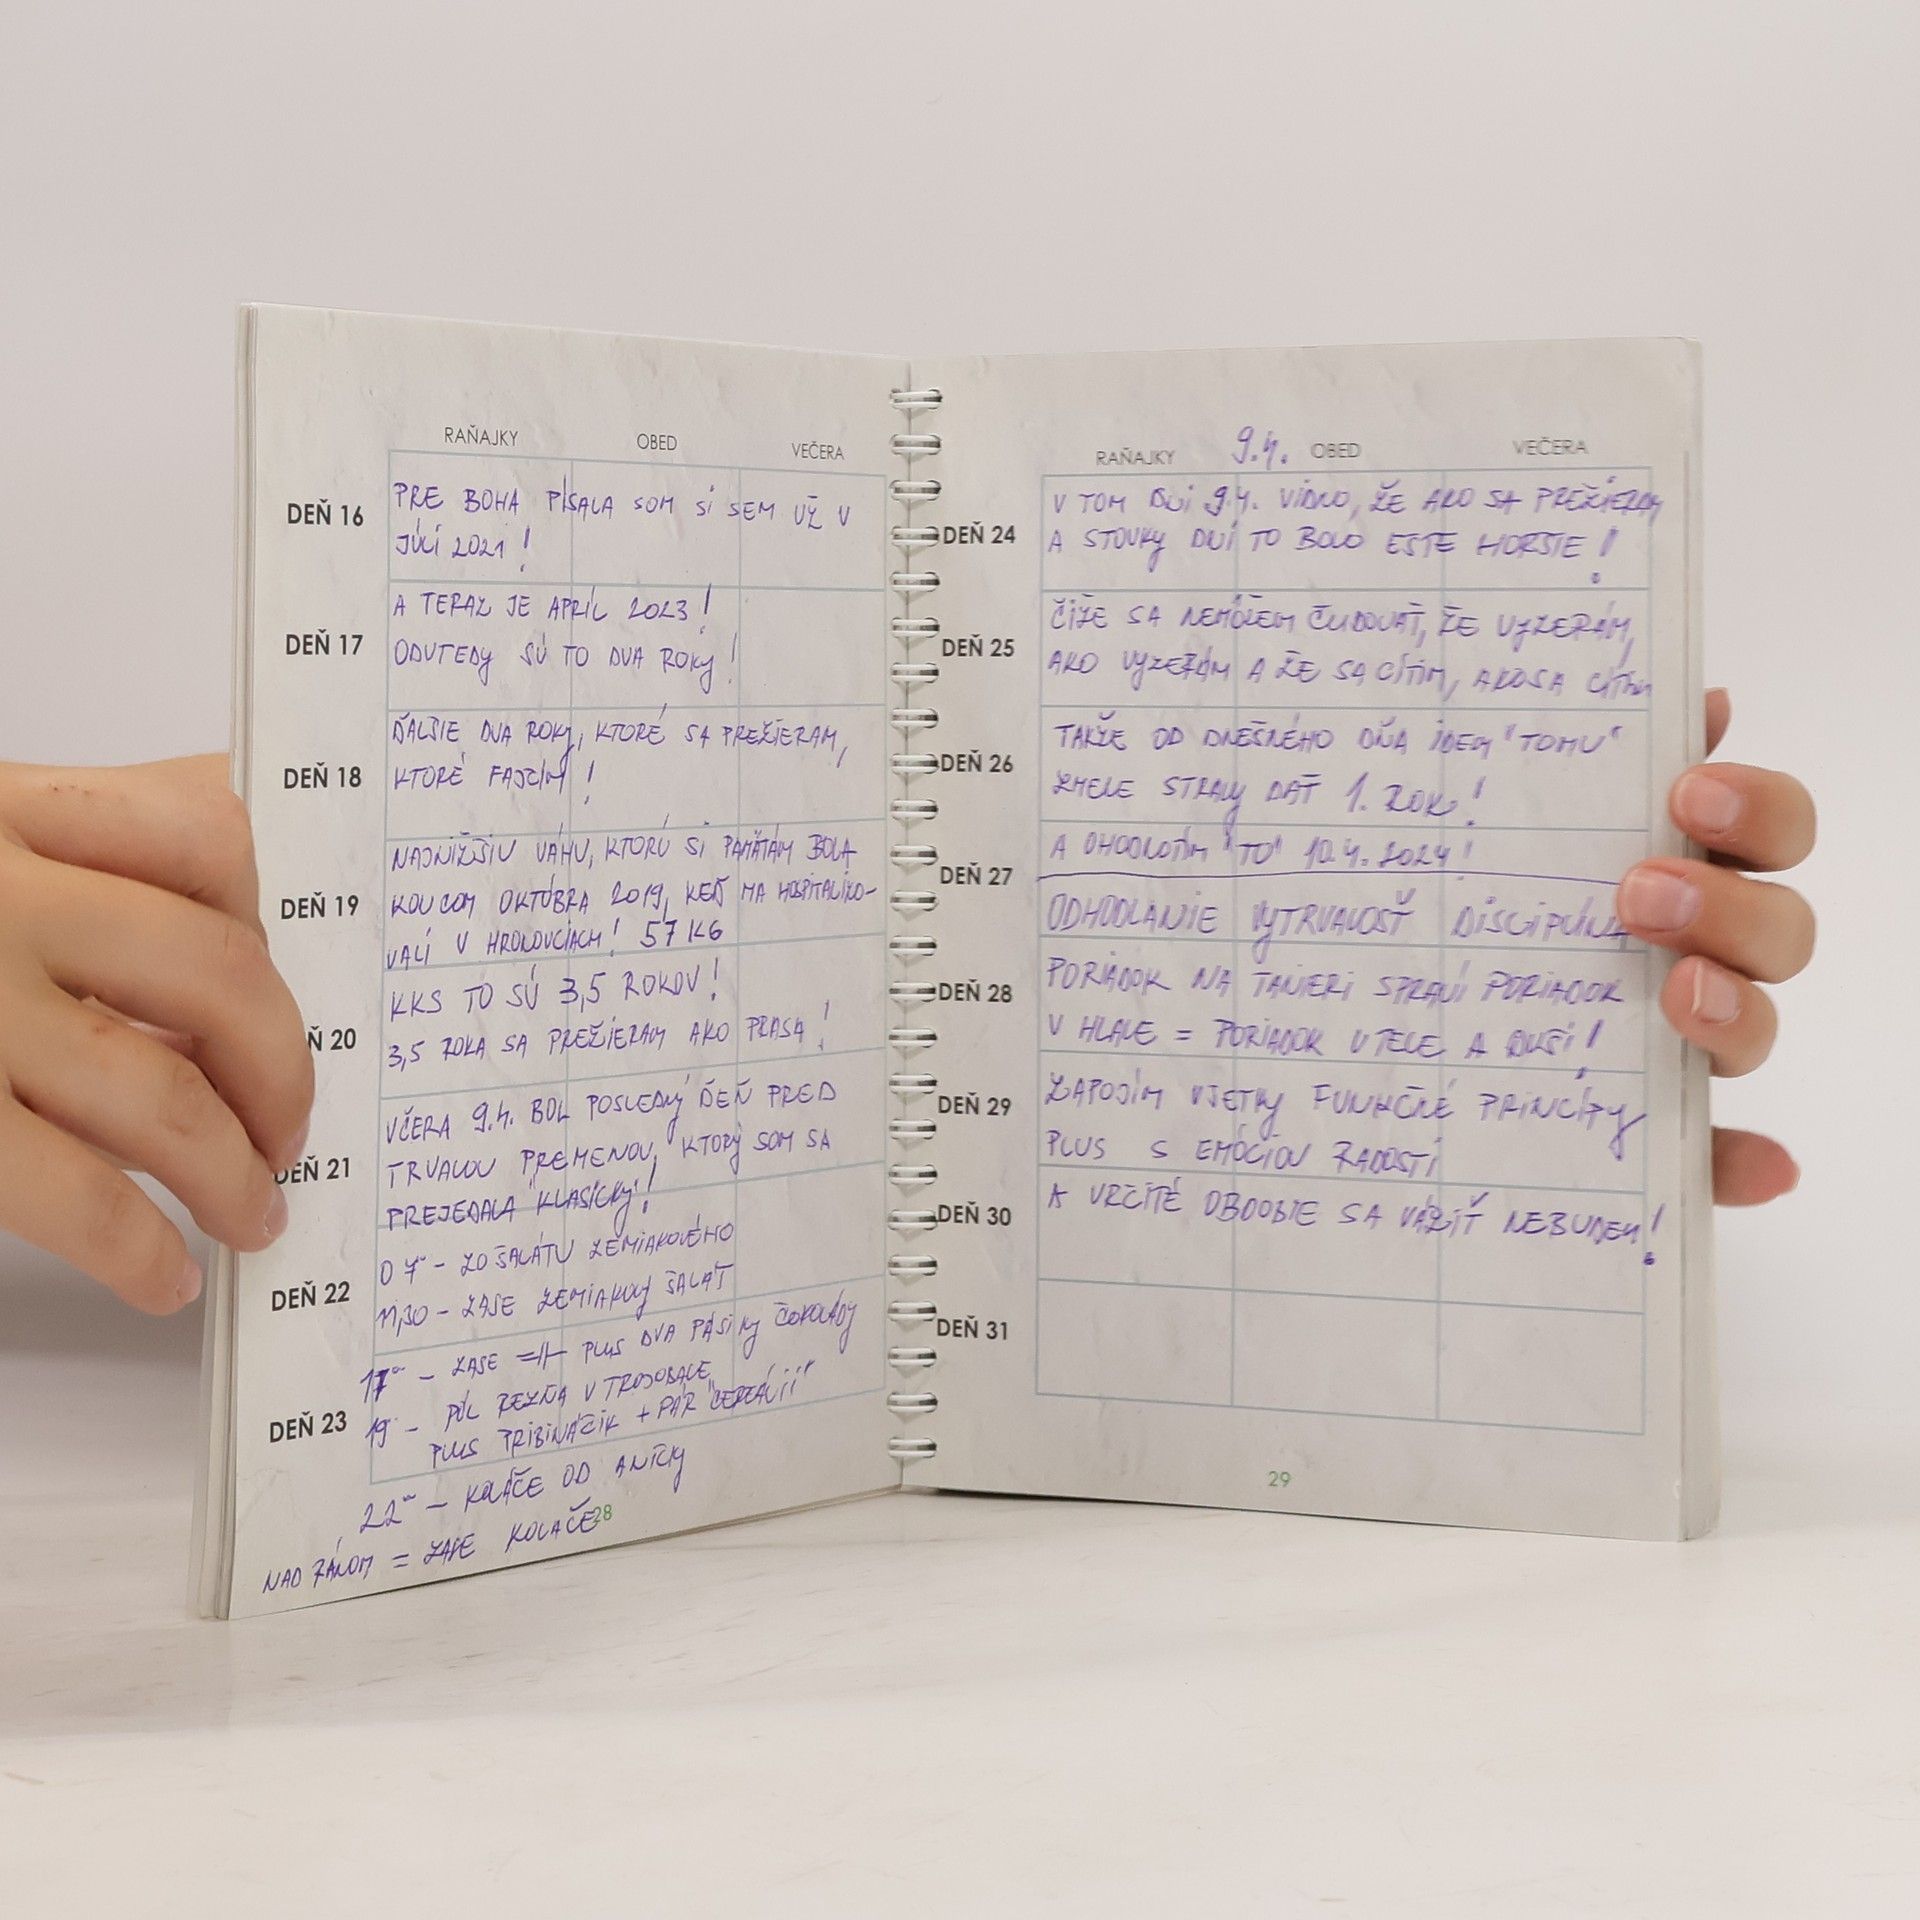 RAŇAJKY OBED VEČERA
DEŇ 16
PRE BOHA PÍSALA SOM SI SEM UŽ V
JÚLI 2021!
DEŇ 17
A TERAZ JE APRÍL 2023!
ODVTEDY SÚ TO DVA ROKY!
DEŇ 18
ĎALŠIE DVA ROKY, KTORÉ SA PREŽIERAM,
KTORÉ FAJČÍM!
DEŇ 19
NAJNIŽŠIU VÁHU, KTORÚ SI PAMÄTÁM BOLA
KONCOM OKTÓBRA 2019, KEĎ MA HOSPITALIZO-
VALI V HRONOVCIACH! 57 KG
Ň 20
KKS TO SÚ 3,5 ROKOV!
3,5 ROKA SA PREŽIERAM AKO PRASA!
DEŇ 21
VČERA 9.4. BOL POSLEDNÝ DEŇ PRED
TRVALOU PREMENOU, KTORÝ SOM SA
PREJEDALA "KLASICKY"!
DEŇ 22
O 7 - ZO ŠALÁTU ZEMIAKOVÉHO
11,30 - ZASE ZEMIAKOVÝ ŠALÁT
DEŇ 23
17 - ZASE =||- PLUS DVA PÁSIKY ČOKOLÁDY
19 - PÓL REZŇA V TROJOBALE
PLUS PRIBINÁČIK + PÁR "CEREÁLIÍ"
22 - KOLÁČE OD ANIČKY
NAD RÁNOM = ZASE KOLÁČE
28
RAŇAJKY 9.4. OBED VEČERA
DEŇ 24
V TOM DNI 9.4. VIDNO, ŽE AKO SA PREŽIERAM
A STOVKY DNÍ TO BOLO EŠTE HORŠIE!
DEŇ 25
ČIŽE SA NEMÔŽEM ČUDOVAŤ, ŽE VYZERÁM,
AKO VYZERÁM A ŽE SA CÍTIM, AKO SA CÍTIM
DEŇ 26
TAKŽE OD DNEŠNÉHO DŇA IDEM "TOMU"
ZMENE STRAVY DAŤ 1. ROK!
DEŇ 27
A OHODNOTÍM "TO" 10.4.2024!
ODHODLANIE VYTRVALOSŤ DISCIPLÍNA
DEŇ 28
PORIADOK NA TANIERI SPRAVÍ PORIADOK
V HLAVE = PORIADOK V TELE A DUŠI!
DEŇ 29
ZAPOJÍM VŠETKY FUNKČNÉ PRINCÍPY
PLUS S EMÓCIOU RADOSTI
DEŇ 30
A URČITE OBDOBIE SA VÁŽIŤ NEBUDEM!
DEŇ 31
29